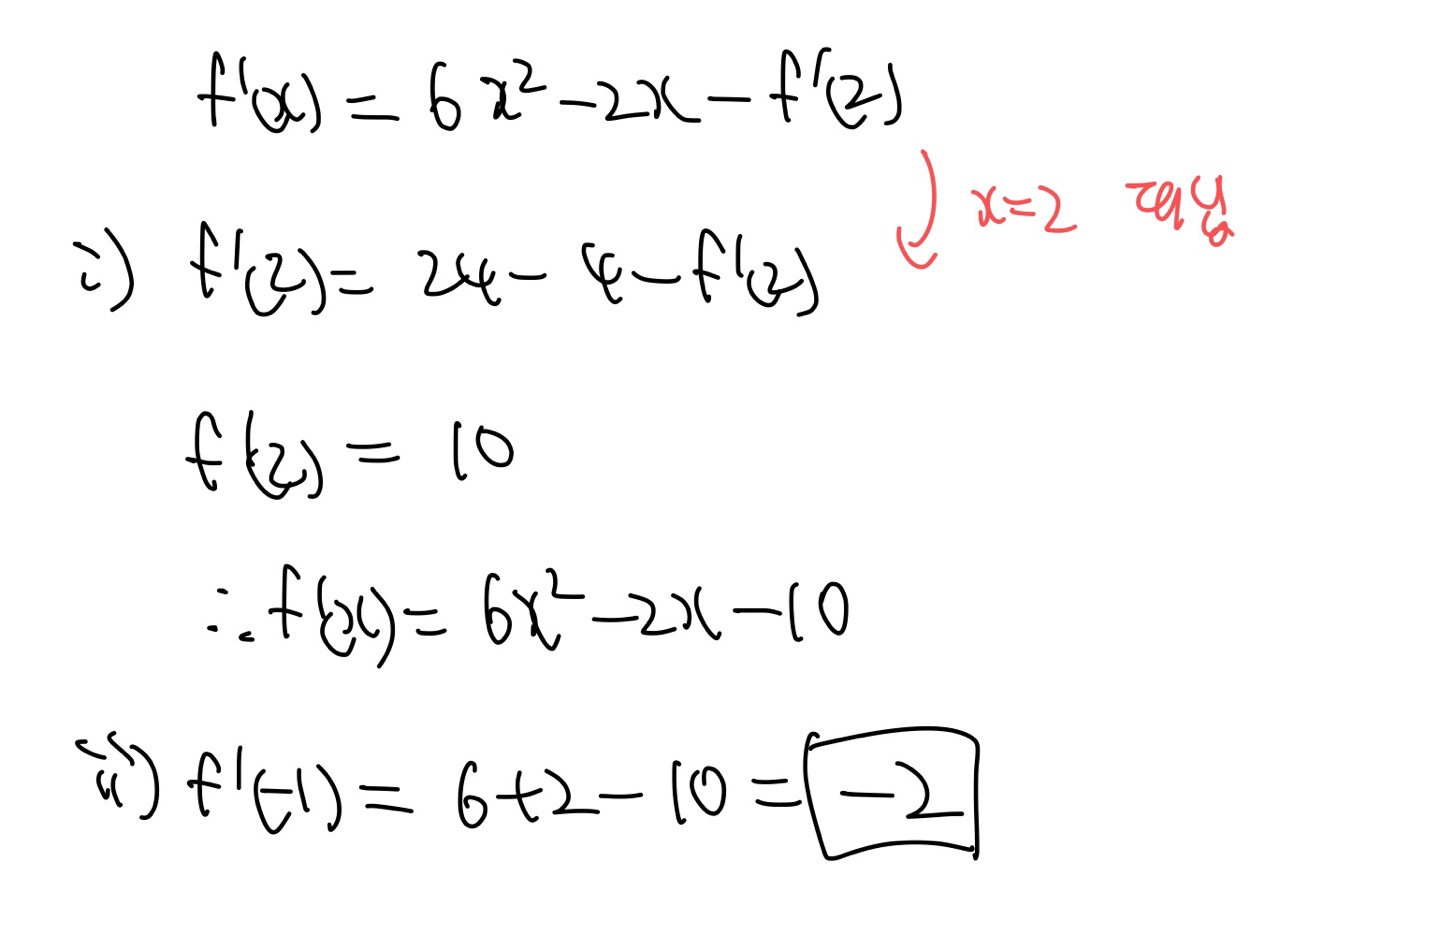 f'(x) = 6x² - 2x - f'(2)
x=2 대입
i) f'(2) = 24 - 4 - f'(2)
f'(2) = 10
∴ f'(x) = 6x² - 2x - 10
ii) f'(-1) = 6 + 2 - 10 = -2